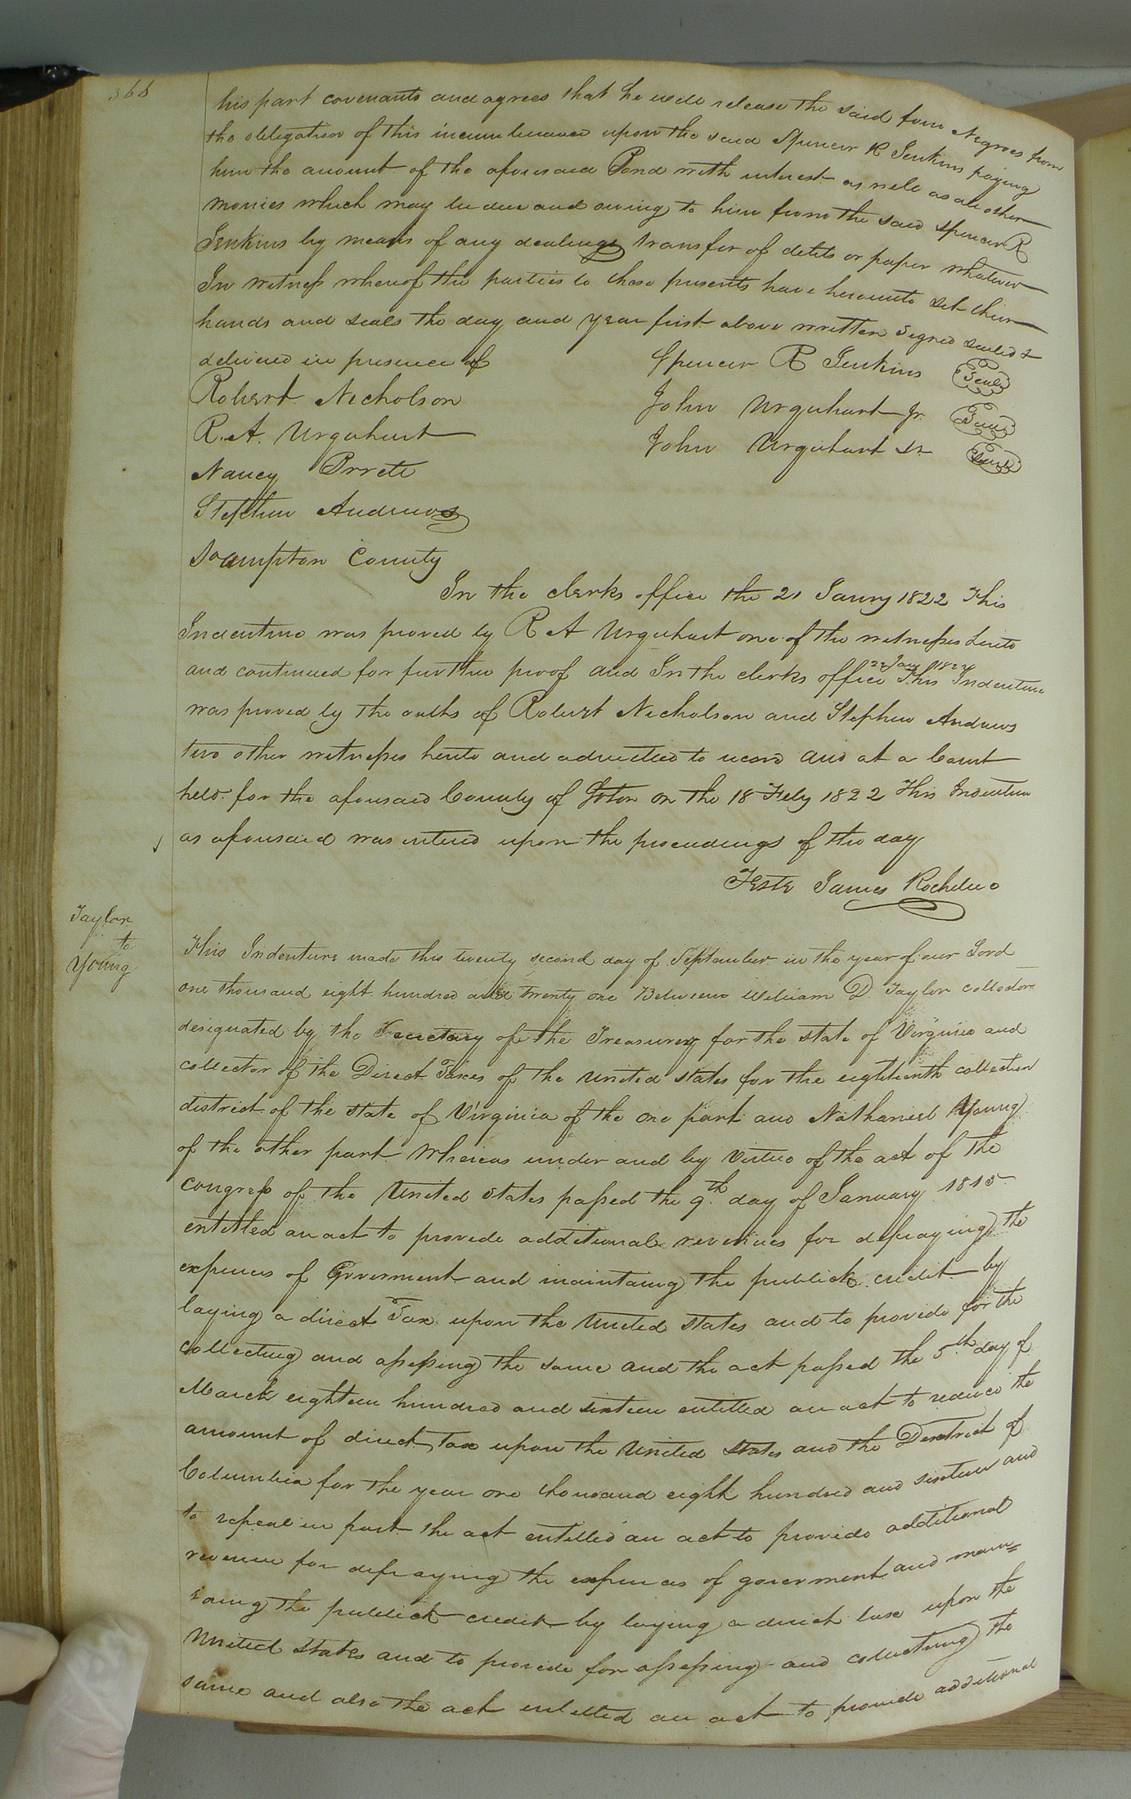 368
his part covenants and agrees that he will release the said four Negroes from
the obligation of this incumberance upon the said Spencer R Jenkins paying
him the amount of the aforesaid Bond with interest as well as all other
monies which may be due and owing to him from the said Spencer R
Jenkins by means of any dealings transfer of debts or paper whatever
In witness whereof the parties to these presents have hereunto set their
hands and seals the day and year first above written Signed sealed &
delivered in presence of
Spencer R Jenkins Seal
Robert Nicholson
John Urquhart Jr. Seal
R. A. Urquhart
John Urquhart Sr Seal
Nancy
Stephen Andrews
Soampton County
In the clerks office the 21 Janry 1822 This
Indenture was proved by R A Urquhart one of the witnesses hereto
and continued for further proof and In the clerks office 22 Jany 1822 This Indenture
was proved by the oaths of Robert Nicholson and Stephen Andrews
two other witnesses hereto and admitted to record and at a Court
held for the aforesaid County of Soton on the 18 Feby 1822 This Indenture
as aforesaid was entered upon the proceedings of the day
Teste James Rochelle
Taylor
to
Young
This Indenture made this twenty second day of September in the year of our Lord
one thousand eight hundred and twenty one Between William D Taylor collector
designated by the Secretary of the Treasurey for the state of Virginia and
collector of the Direct Taxes of the United States for the eighteenth collection
district of the state of Virginia of the one part and Nathaniel Young
of the other part Whereas under and by Virtue of the act of the
congress of the United States passed the 9th day of January 1815
entitled an act to provide additional revenues for defraying the
expences of Goverment and maintaing the publick credit by
laying a direct Tax upon the United States and to provide for the
collecting and assessing the same and the act passed the 5th day of
March eighteen hundred and sixteen entitled an act to reduce the
amount of direct tax upon the United States and the District of
Columbia for the year one thousand eight hundred and sixteen and
to repeal in part the act entitled an act to provide additional
revenue for defraying the expences of goverment and main=
taing the publick credit by laying a direct tax upon the
United States and to provide for assessing and collecting the
same and also the act entitled an act to provide additional